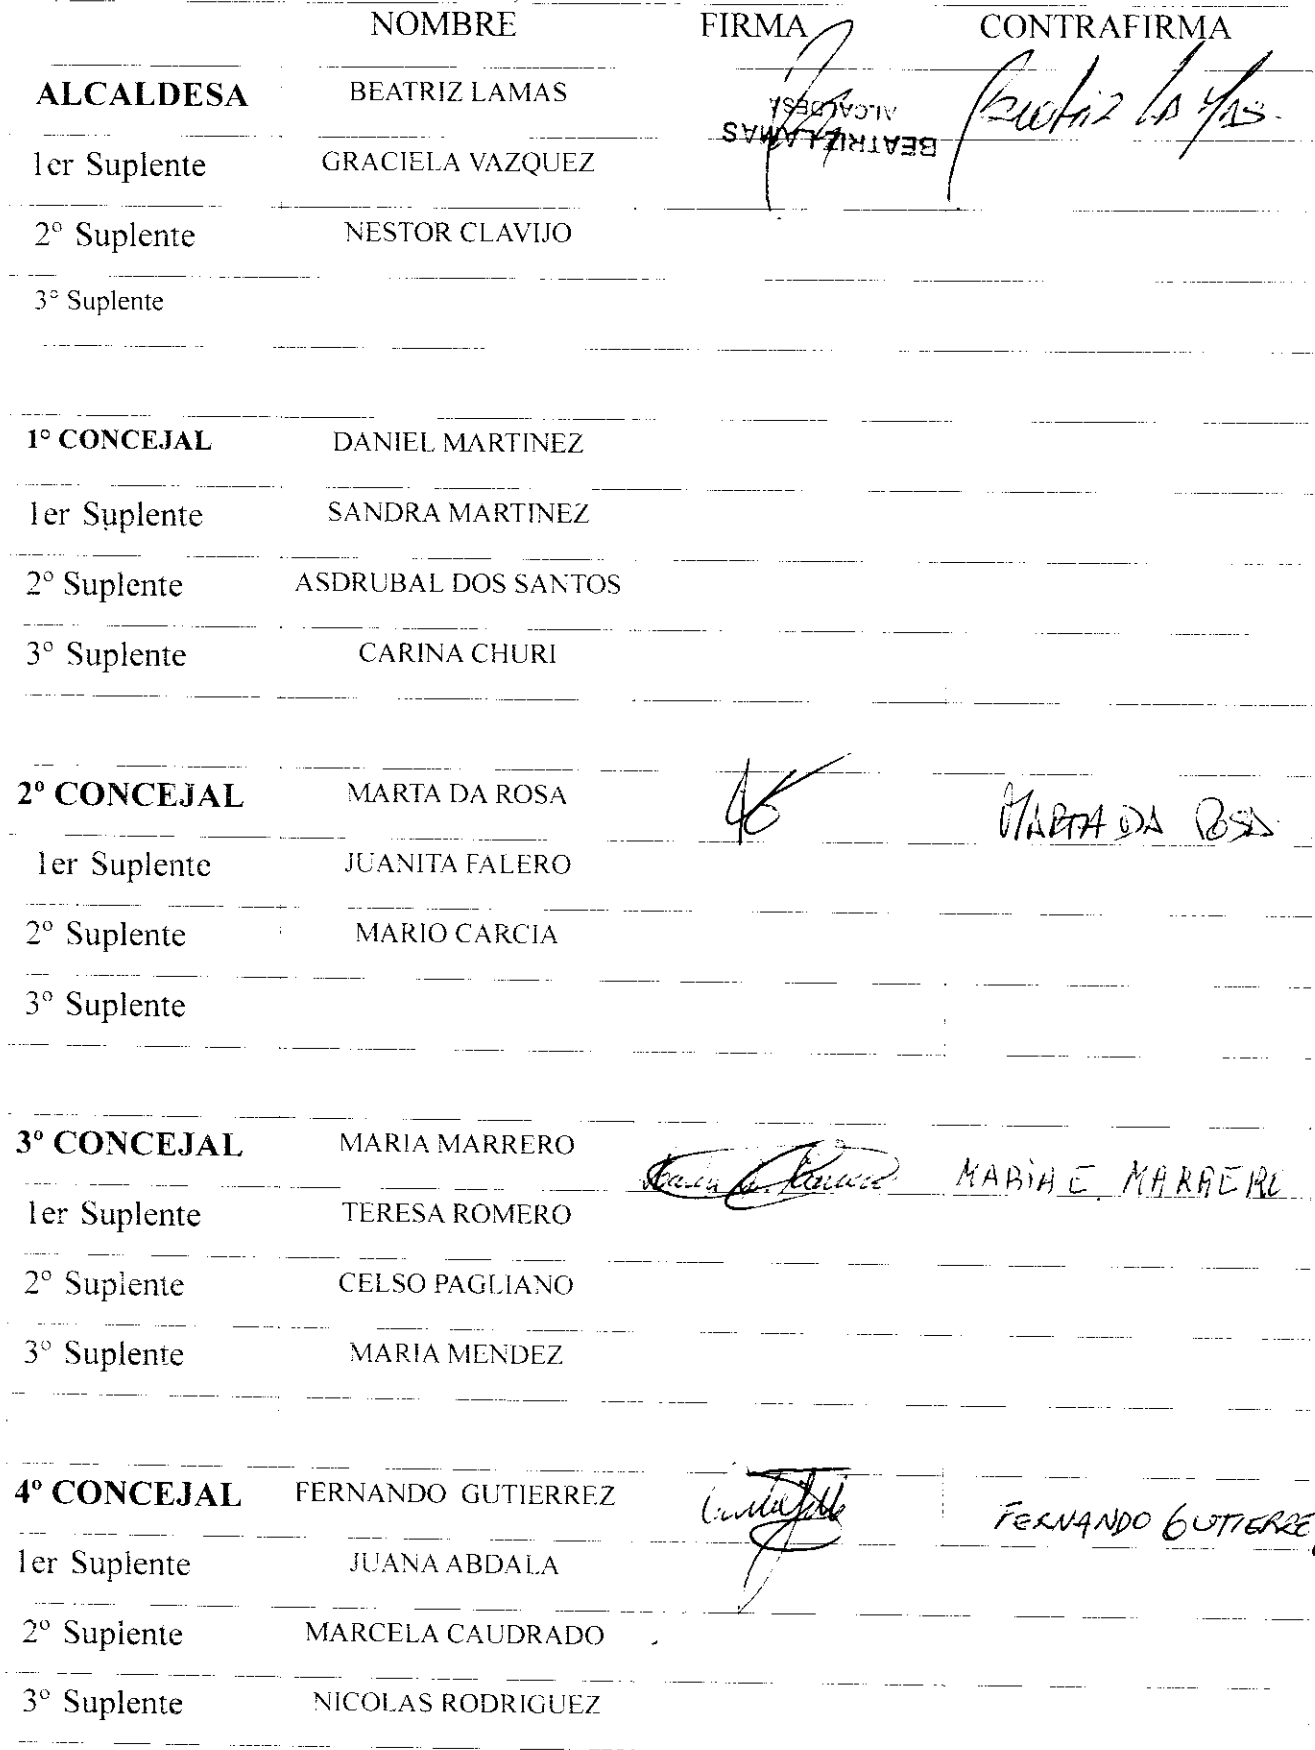 NOMBRE FIRMA CONTRAFIRMA
ALCALDESA BEATRIZ LAMAS BEATRIZ LAMAS ALCALDESA Beatriz LAMAS.
1er Suplente GRACIELA VAZQUEZ
2º Suplente NESTOR CLAVIJO
3º Suplente
1º CONCEJAL DANIEL MARTINEZ
1er Suplente SANDRA MARTINEZ
2º Suplente ASDRUBAL DOS SANTOS
3º Suplente CARINA CHURI
2º CONCEJAL MARTA DA ROSA MARTA DA ROSA
1er Suplente JUANITA FALERO
2º Suplente MARIO CARCIA
3º Suplente
3º CONCEJAL MARIA MARRERO MARÌA E. MARRERO
1er Suplente TERESA ROMERO
2º Suplente CELSO PAGLIANO
3º Suplente MARIA MENDEZ
4º CONCEJAL FERNANDO GUTIERREZ FERNANDO GUTIERRE
1er Suplente JUANA ABDALA
2º Suplente MARCELA CAUDRADO
3º Suplente NICOLAS RODRIGUEZ